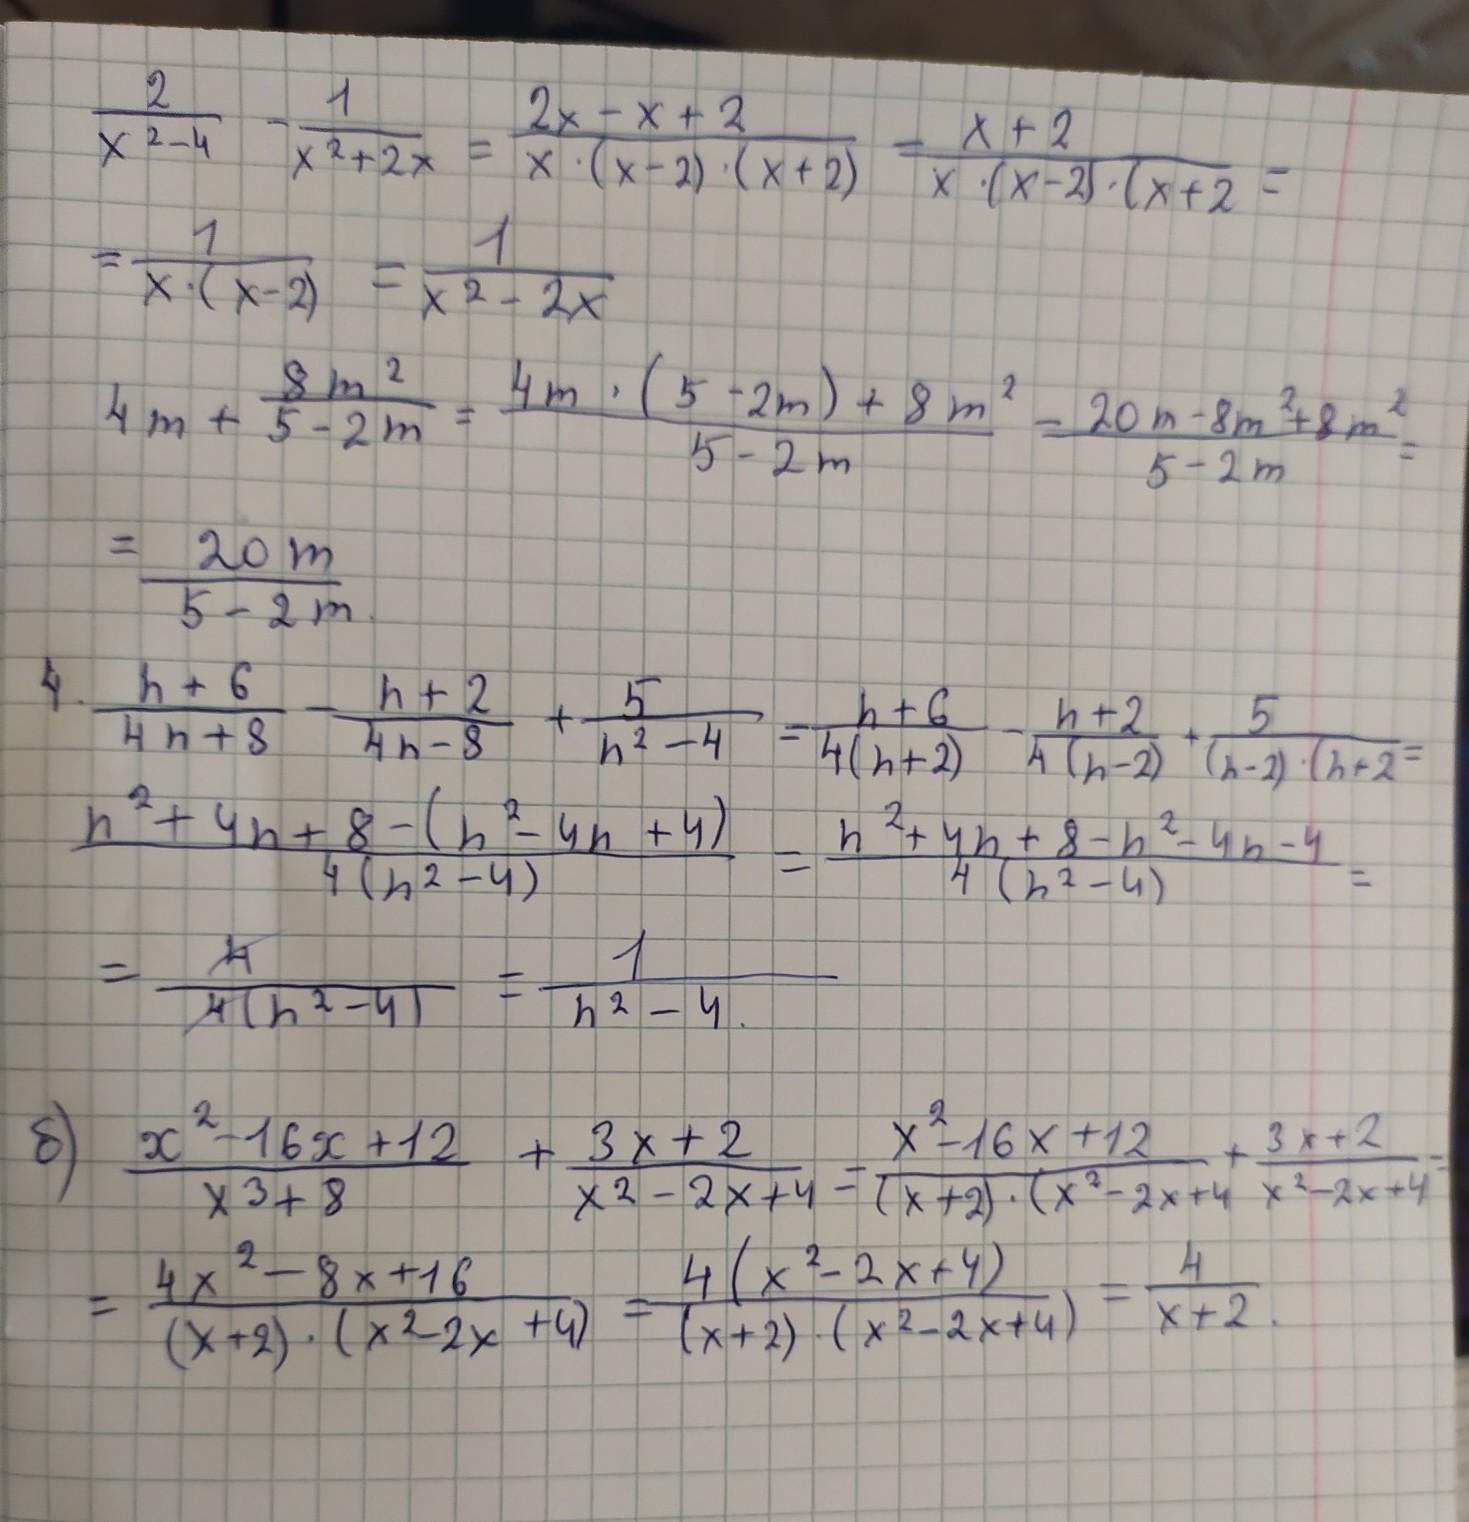 2/(x²-4) - 1/(x²+2x) = (2x-x+2)/(x·(x-2)·(x+2)) = (x+2)/(x·(x-2)·(x+2 =
= 1/(x·(x-2)) = 1/(x²-2x)
4m + 8m²/(5-2m) = (4m·(5-2m)+8m²)/(5-2m) = (20m-8m²+8m²)/(5-2m) =
= 20m/(5-2m).
4. (n+6)/(4n+8) - (n+2)/(4n-8) + 5/(n²-4) = (n+6)/(4(n+2)) - (n+2)/(4(n-2)) + 5/((n-2)·(n+2 =
(n²+4n+8-(n²-4n+4))/(4(n²-4)) = (n²+4n+8-n²-4n-4)/(4(n²-4)) =
= 4/(4(n²-4)) = 1/(n²-4).
б) (x²-16x+12)/(x³+8) + (3x+2)/(x²-2x+4) = (x²-16x+12)/((x+2)·(x²-2x+4 + (3x+2)/(x²-2x+4) =
= (4x²-8x+16)/((x+2)·(x²-2x+4)) = 4(x²-2x+4)/((x+2)·(x²-2x+4)) = 4/(x+2).